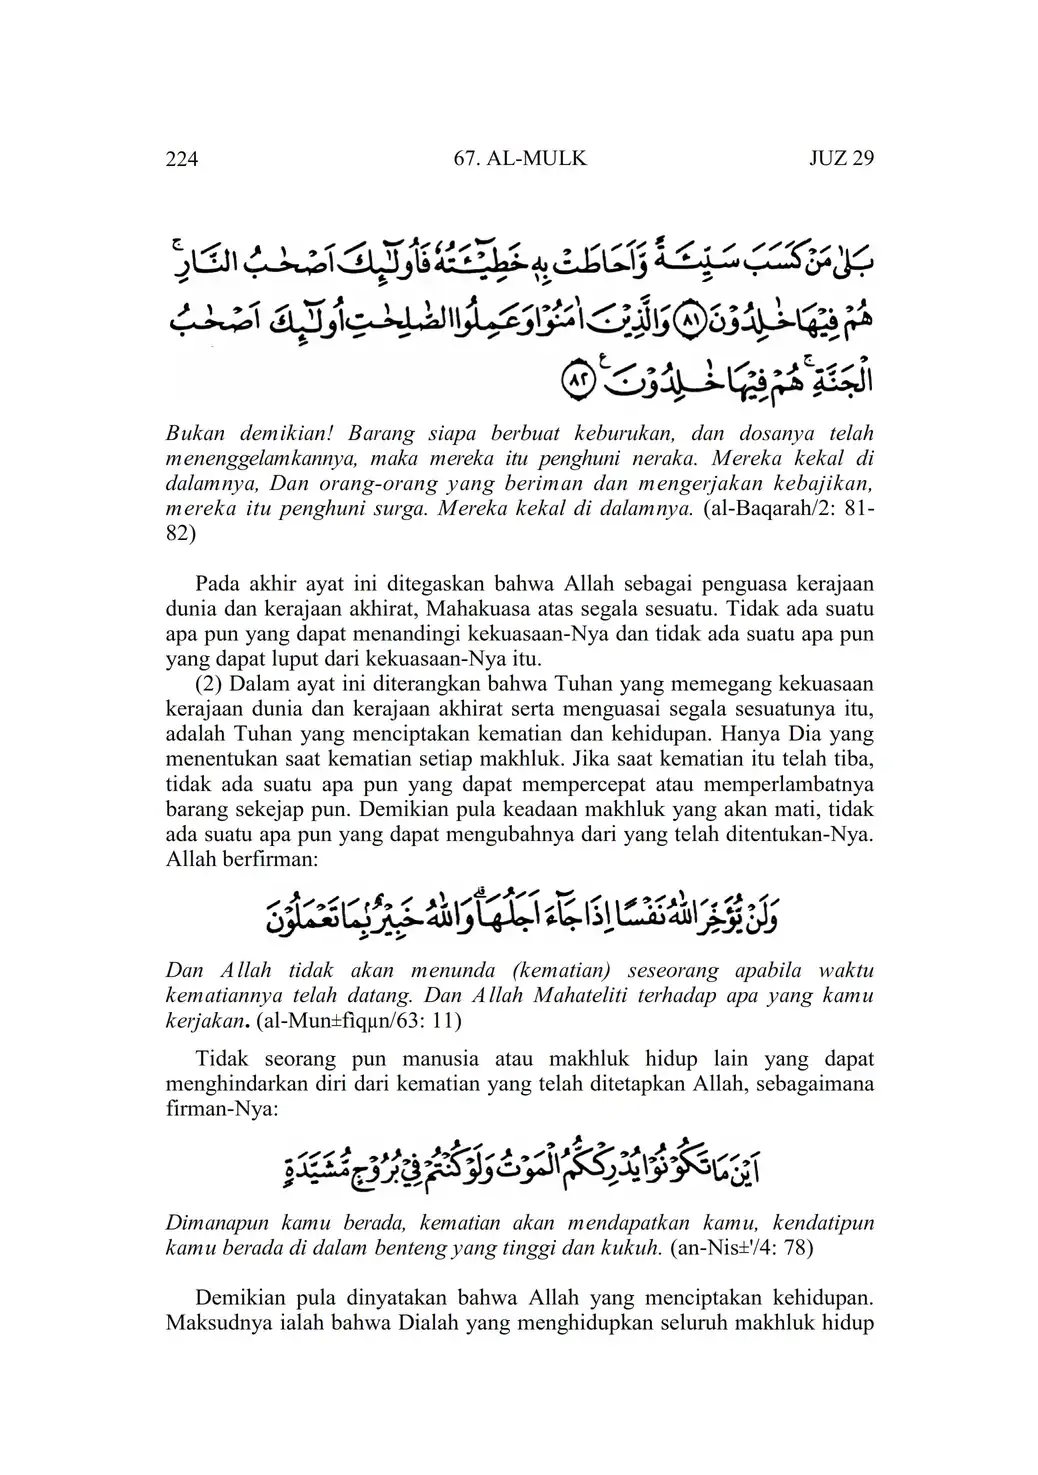 224 67. AL-MULK JUZ 29
بَلٰى مَنْ كَسَبَ سَيِّئَةً وَّاَحَاطَتْ بِهٖ خَطِيْۤـَٔتُهٗ فَاُولٰۤىِٕكَ اَصْحٰبُ النَّارِ ۚ
هُمْ فِيْهَا خٰلِدُوْنَ ﴿٨١﴾ وَالَّذِيْنَ اٰمَنُوْا وَعَمِلُوا الصّٰلِحٰتِ اُولٰۤىِٕكَ اَصْحٰبُ
الْجَنَّةِ ۚ هُمْ فِيْهَا خٰلِدُوْنَ ࣖ ﴿٨٢﴾
Bukan demikian! Barang siapa berbuat keburukan, dan dosanya telah
menenggelamkannya, maka mereka itu penghuni neraka. Mereka kekal di
dalamnya, Dan orang-orang yang beriman dan mengerjakan kebajikan,
mereka itu penghuni surga. Mereka kekal di dalamnya. (al-Baqarah/2: 81-
82)
Pada akhir ayat ini ditegaskan bahwa Allah sebagai penguasa kerajaan
dunia dan kerajaan akhirat, Mahakuasa atas segala sesuatu. Tidak ada suatu
apa pun yang dapat menandingi kekuasaan-Nya dan tidak ada suatu apa pun
yang dapat luput dari kekuasaan-Nya itu.
(2) Dalam ayat ini diterangkan bahwa Tuhan yang memegang kekuasaan
kerajaan dunia dan kerajaan akhirat serta menguasai segala sesuatunya itu,
adalah Tuhan yang menciptakan kematian dan kehidupan. Hanya Dia yang
menentukan saat kematian setiap makhluk. Jika saat kematian itu telah tiba,
tidak ada suatu apa pun yang dapat mempercepat atau memperlambatnya
barang sekejap pun. Demikian pula keadaan makhluk yang akan mati, tidak
ada suatu apa pun yang dapat mengubahnya dari yang telah ditentukan-Nya.
Allah berfirman:
وَلَنْ يُّؤَخِّرَ اللّٰهُ نَفْسًا اِذَا جَاۤءَ اَجَلُهَاۗ وَاللّٰهُ خَبِيْرٌۢ بِمَا تَعْمَلُوْنَ
Dan Allah tidak akan menunda (kematian) seseorang apabila waktu
kematiannya telah datang. Dan Allah Mahateliti terhadap apa yang kamu
kerjakan. (al-Mun±fiqµn/63: 11)
Tidak seorang pun manusia atau makhluk hidup lain yang dapat
menghindarkan diri dari kematian yang telah ditetapkan Allah, sebagaimana
firman-Nya:
اَيْنَ مَا تَكُوْنُوْا يُدْرِكْكُّمُ الْمَوْتُ وَلَوْ كُنْتُمْ فِيْ بُرُوْجٍ مُّشَيَّدَةٍ
Dimanapun kamu berada, kematian akan mendapatkan kamu, kendatipun
kamu berada di dalam benteng yang tinggi dan kukuh. (an-Nis±'/4: 78)
Demikian pula dinyatakan bahwa Allah yang menciptakan kehidupan.
Maksudnya ialah bahwa Dialah yang menghidupkan seluruh makhluk hidup